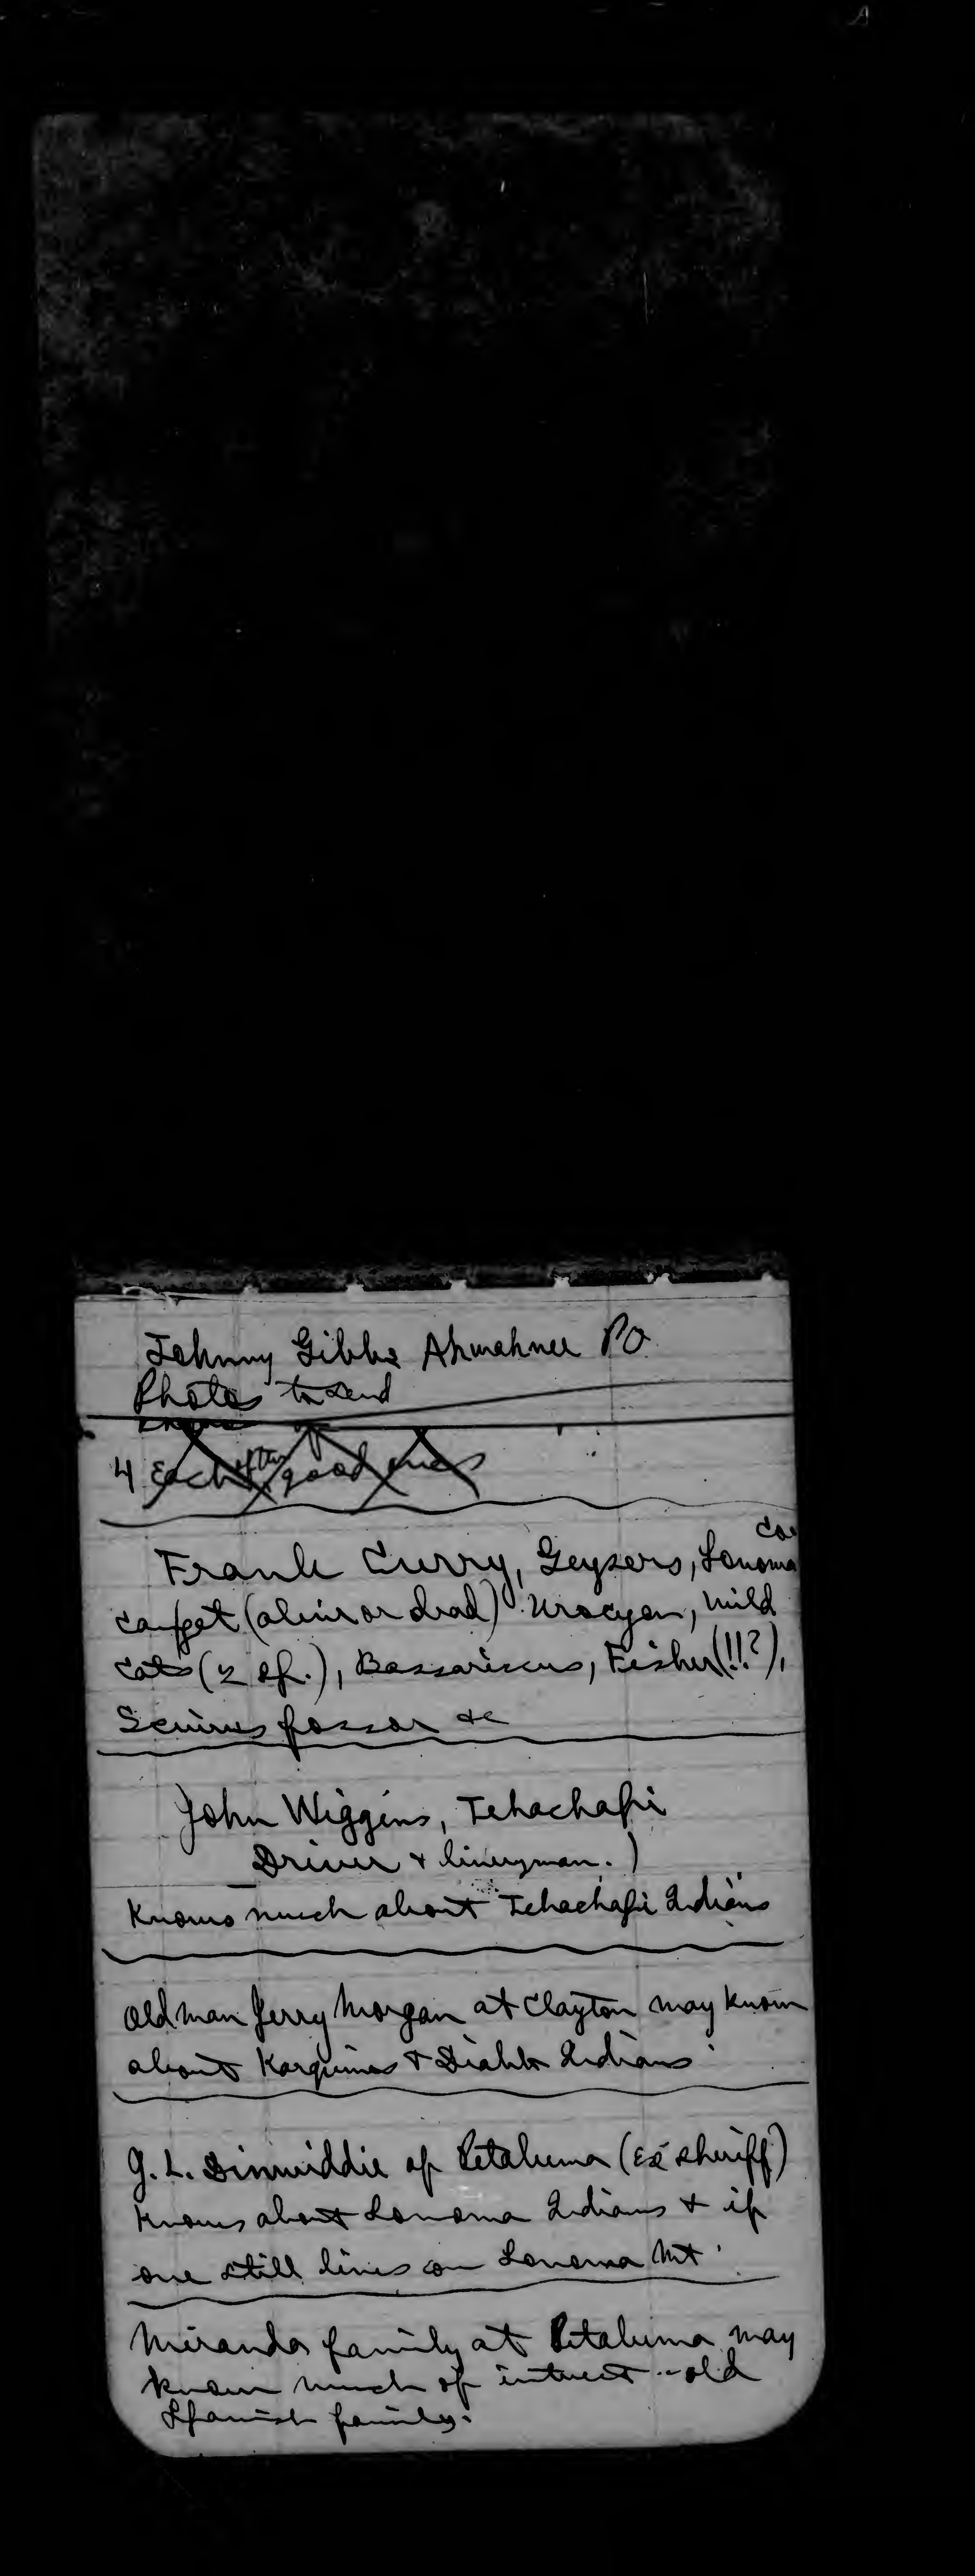 Johnny Gibbs Ahwahnee PO
Photos to send
4 Each after good ones
Frank Curry, Geysers, Sonoma Co
can get (alive or dead) Urocyon, Wild
cats (2 sp.), Bassariscus, Fisher (!!?),
Sciurus fossor &c
John Wiggins, Tehachapi
Driver & liveryman.)
Knows much about Tehachapi Indians
Old man Jerry Morgan at Clayton may know
about Karquines & Diablo Indians
G. L. Dinwiddie of Petaluma (Ex sheriff)
knows about Sonoma Indians & if
one still lives on Sonoma Mt.
Miranda family at Petaluma may
know much of interest -- old
Spanish family.